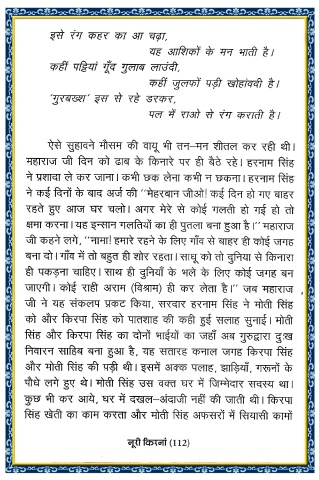 इसे रंग कहर का आ चढ़ा,
यह आशिकों के मन भाती है।
कहीं पट्टियां गूँद गुलाब लाउंदी,
कहीं जुलफों पड़ी खोहांक्दी है।
'गुरबख्श' इस से रहे डरकर,
पल में राओ से रंग कराती है।
ऐसे सुहावने मौसम की वायू भी तन–मन शीतल कर रही थी।
महाराज जी दिन को ढाब के किनारे पर ही बैठे रहे। हरनाम सिंह
ने प्रशादा ले कर जाना। कभी छक लेना कभी न छकना। हरनाम सिंह
ने कई दिनों के बाद अर्ज की "मेहरबान जीओ! कई दिन हो गए बाहर
रहते हुए आज घर चलो। अगर मेरे से कोई गलती हो गई हो तो
क्षमा करना। यह इन्सान गलतियों का ही पुतला बना हुआ है।" महाराज
जी कहने लगे, "नामा! हमारे रहने के लिए गाँव से बाहर ही कोई जगह
बना दो। गाँव में तो बहुत ही शोर रहता। साधू को तो दुनिया से किनारा
ही पकड़ना चाहिए। साथ ही दुनियाँ के भले के लिए कोई जगह बन
जाएगी। कोई राही अराम (विश्राम) ही कर लेता है।" जब महाराज
जी ने यह संकलप प्रकट किया, सरदार हरनाम सिंह ने मोती सिंह
को और किरपा सिंह को पातशाह की कही हुई सलाह सुनाई। मोती
सिंह और किरपा सिंह का दोनों भाईयों का जहाँ अब गुरुद्वारा दुःख
निवारन साहिब बना हुआ है, यह सतारह कनाल जगह किरपा सिंह
और मोती सिंह की पड़ी थी। इसमें अक्क पलाह, झाड़ियाँ, गरूनों के
पौधे लगे हुए थे। मोती सिंह उस वक्त घर में जिम्मेदार सदस्य था।
कुछ भी कर आये, घर में दखल–अंदाजी नहीं की जाती थी। किरपा
सिंह खेती का काम करता और मोती सिंह अफसरों में सियासी कामों
नूरी किरनां (112)